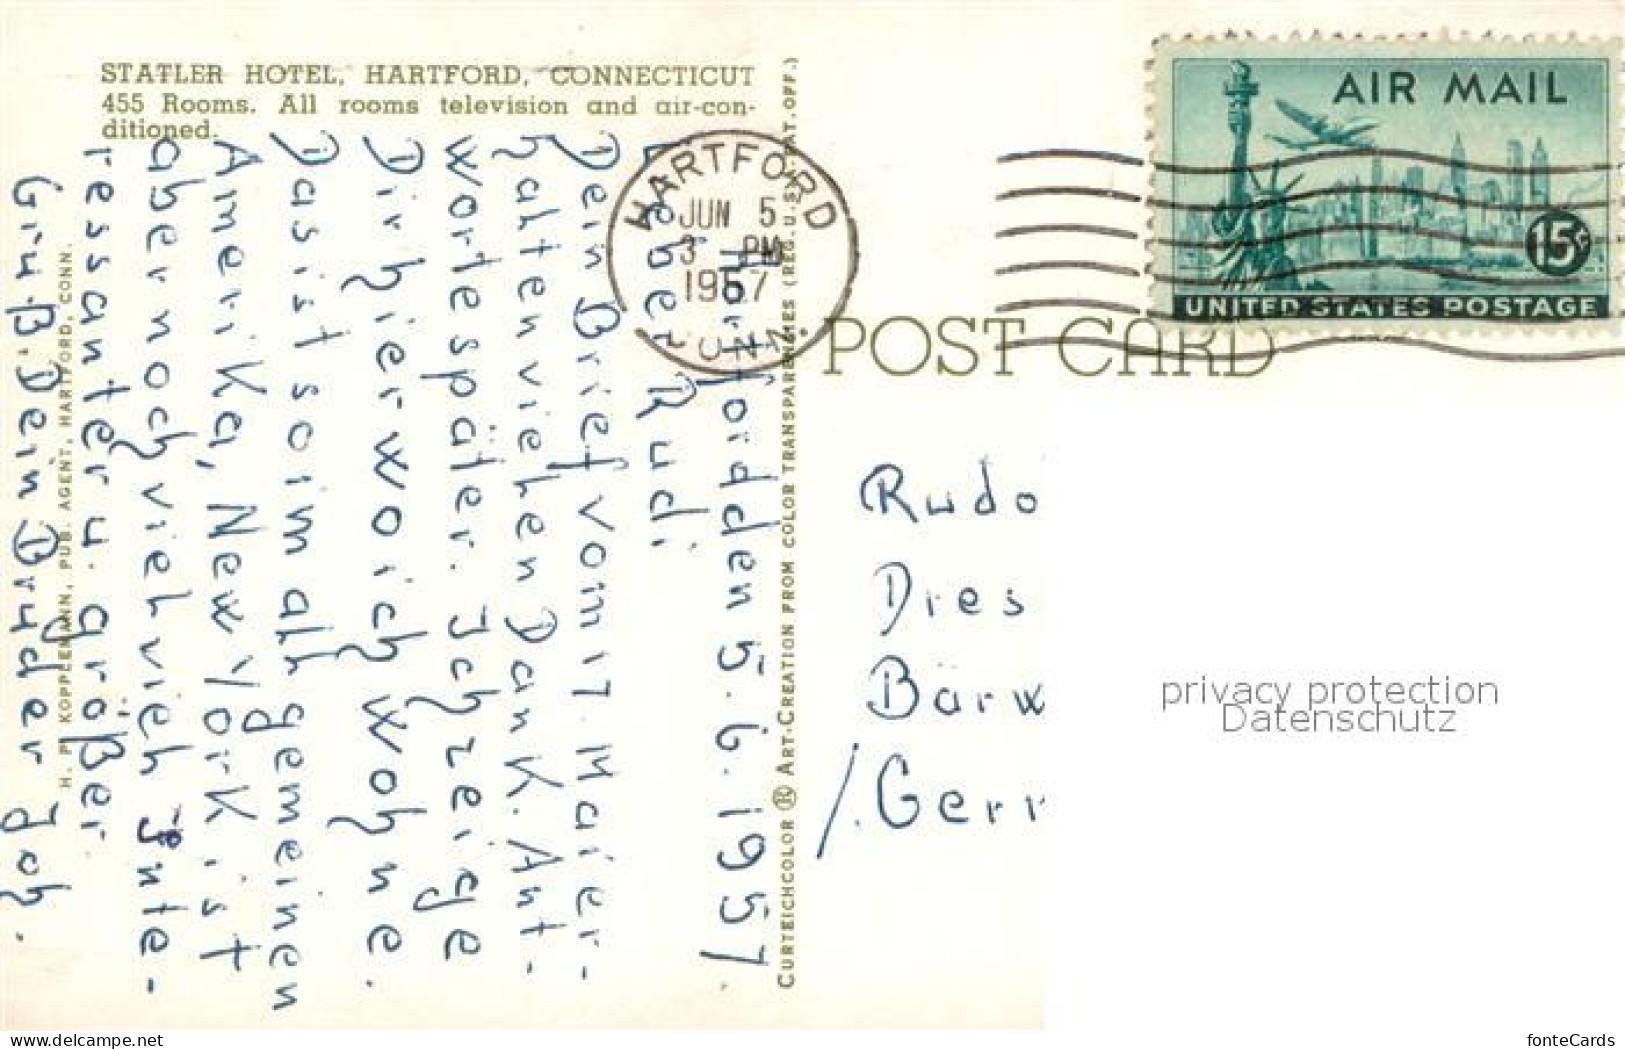 STATLER HOTEL, HARTFORD, CONNECTICUT
455 Rooms. All rooms television and air-con-
ditioned.
Hartford den 5.6.1957
Lieber Rudi.
Dein Brief vom 17. Mai er-
halten vielen Dank. Ant-
wort später. Ich zeige
Dir hier wo ich wohne.
Das ist so im allgemeinen
Amerika, New York ist
aber noch viel viel Inte-
ressanter u. größer
Gruß. Dein Bruder Joh.
H. P. KOPPLEMANN, PUB. AGENT, HARTFORD, CONN.
CURTEICHCOLOR ® ART-CREATION FROM COLOR TRANSPARENCIES (REG. U.S. PAT. OFF.)
HARTFORD
JUN 5
3 PM
1957
CONN.
AIR MAIL
15¢
UNITED STATES POSTAGE
POST CARD
Rudo
Dres
Bärw
/. Ger
privacy protection
Datenschutz
www.delcampe.net
fonteCards